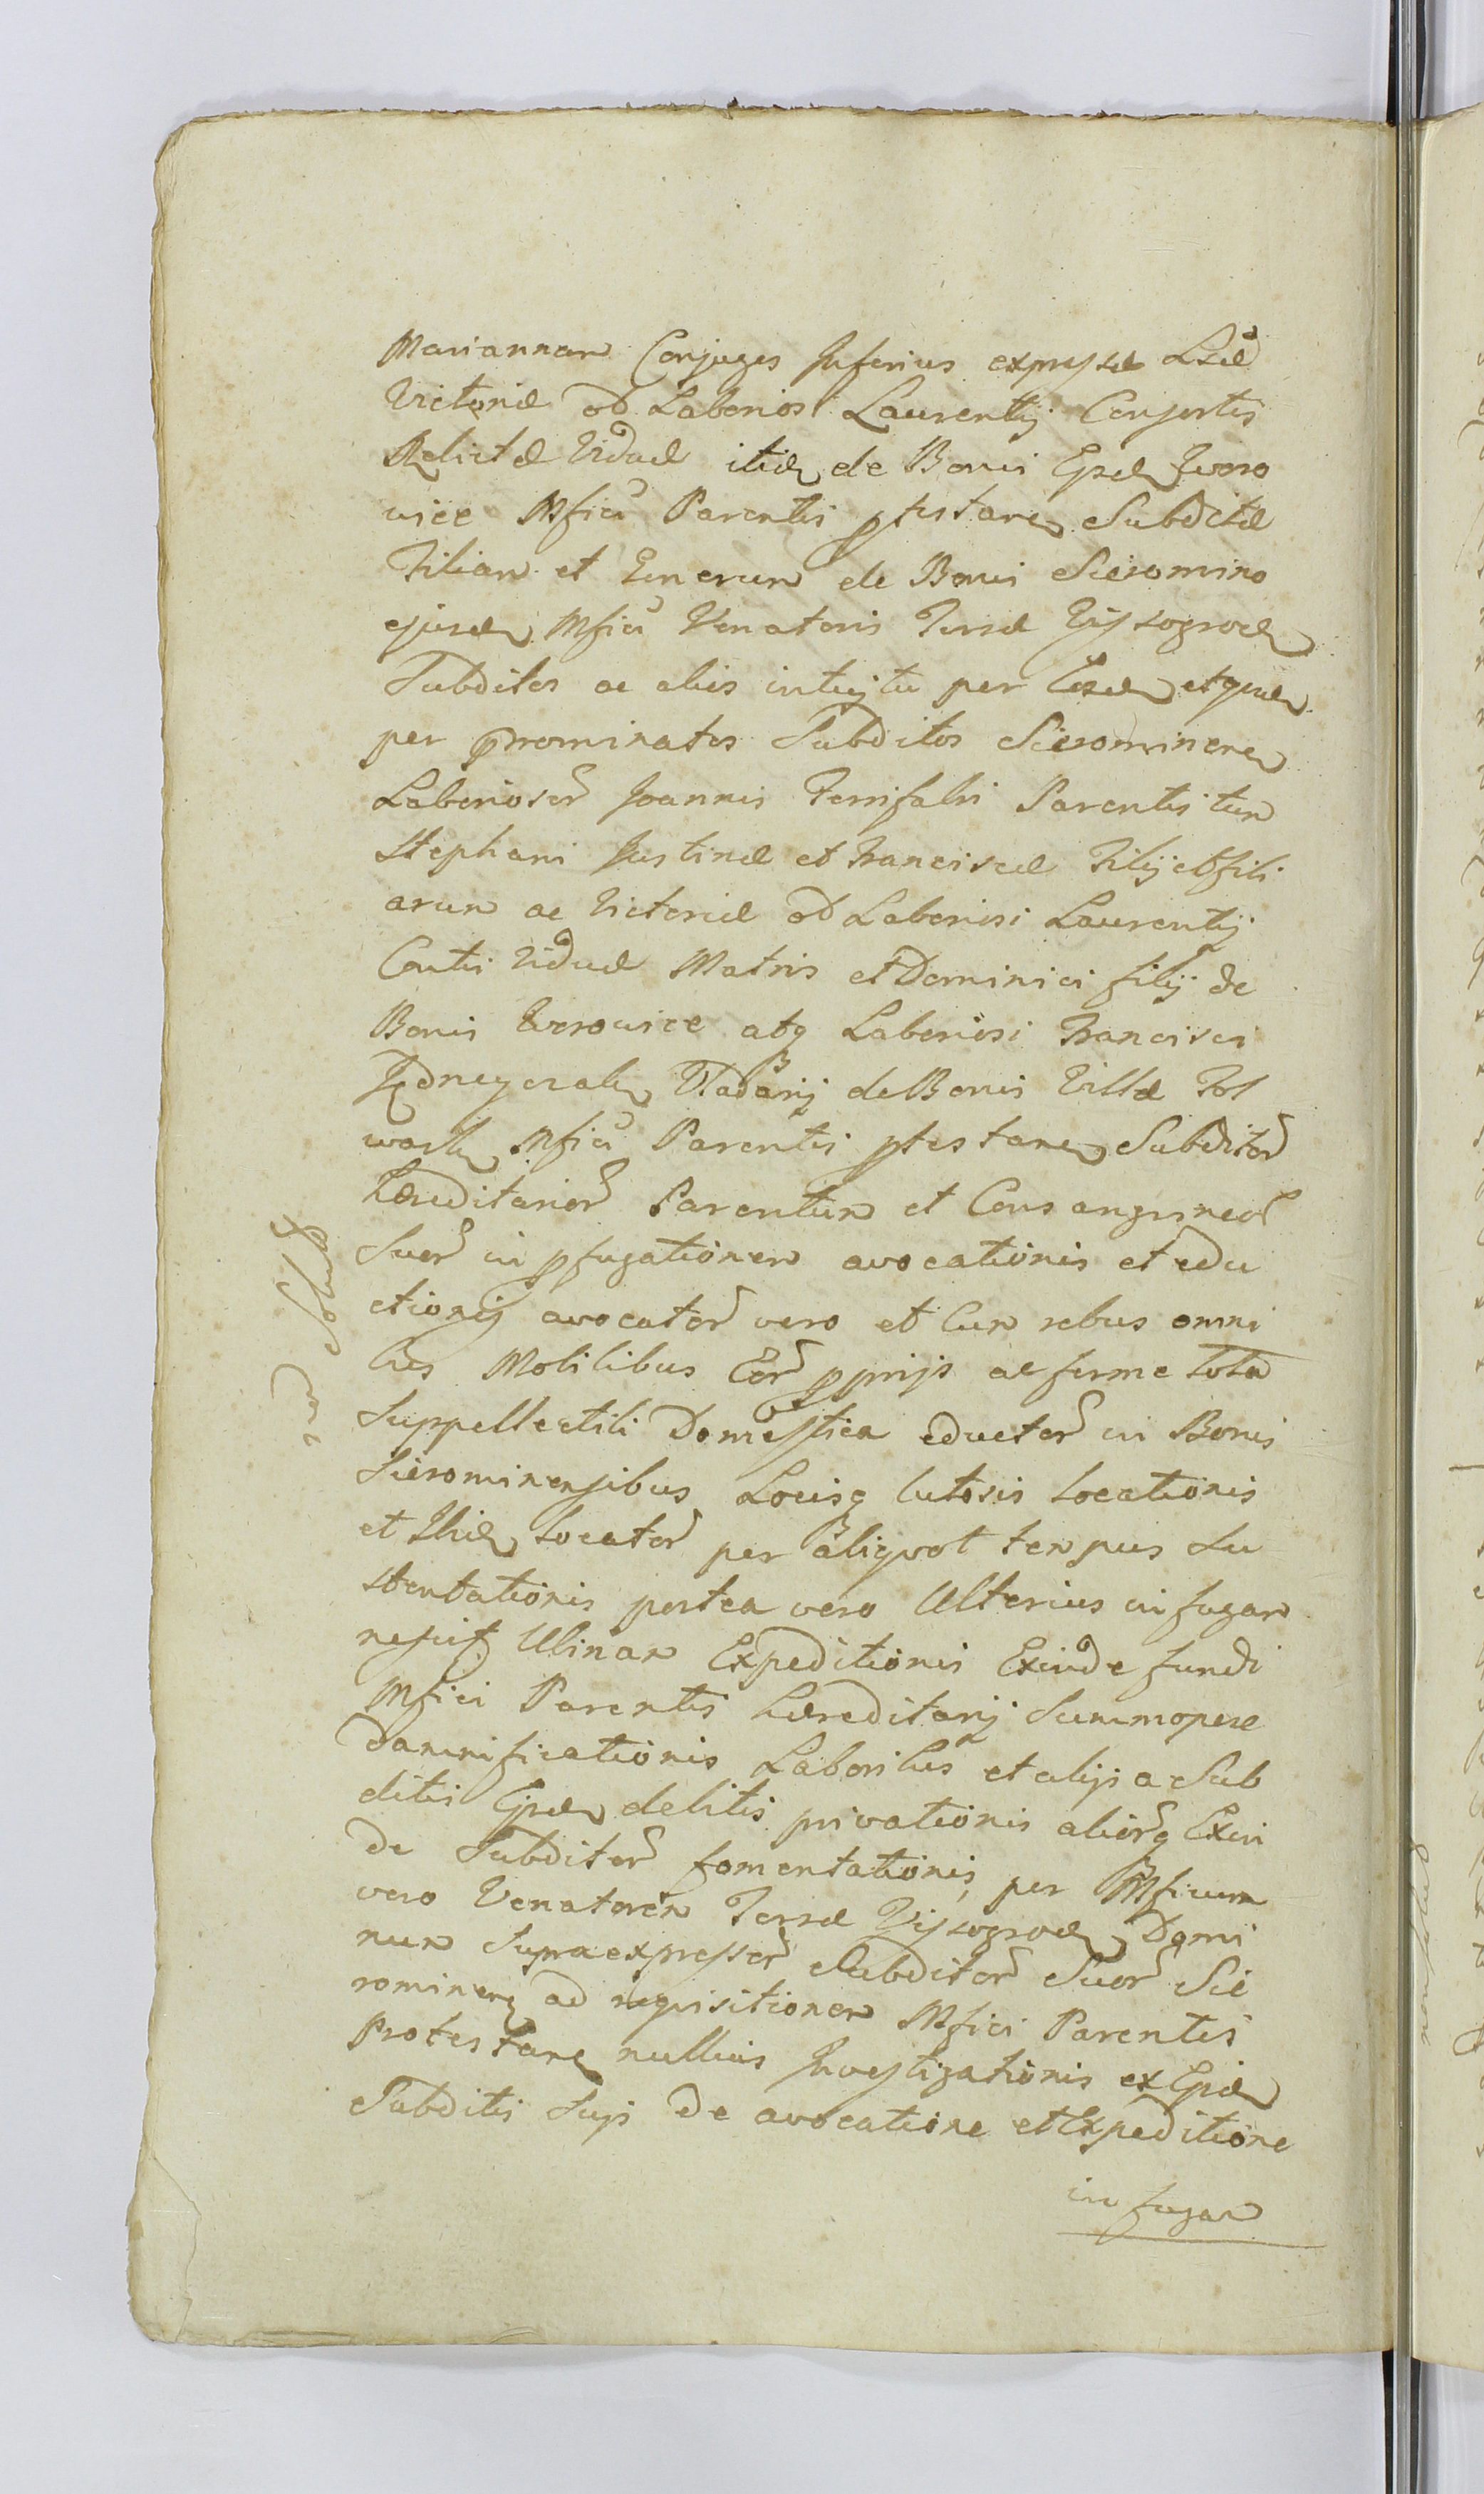 Mariannam Conjuges Inferius expressæ Lsæ
Victoriæ od Laboriosi Laurentij Consortis
Relictæ Viduæ itid de Bonis Ejsd Iworo
wice Mfici Parentis ptestane Subditæ
Filiam et Generum de Bonis Sieromino
ejusd Mfici Venatoris Terræ Vissogrod
Subditos ac aliis intuitu per Eosd
per prænominatos Subditos Sieromineñ
Laboriosor Joannis Ferrifabri Parentis tum
Stephani Justinæ et Franciscæ Filij et fili
arum ac Victoriæ od Laboriosi Laurentij
Contis Viduæ Matris et Dominici filij de
Bonis Iworowice atq Laboriosi Francisci
Wladarij de Bonis Villæ Fol
wark Mfici Parentis ptestane Subditor
hæreditarior Parentum et Consanguineor
Suor in pfugationem avocationis et edu
ctionis avocator vero et Cum rebus omni
bus Mobilibus Eor pprijs ac ferme tota
Suppellectili Domestica eductor in Bonis
Sierominensibus Locisq lutosis locationis
et Ibid locator per aliquot tempus su
stentationis postea vero Ulterius in fugam
Ulinam Expeditionis Exinde fundi
Mfici Parentis hæreditarij Summopere
damnificationis Laboribus et alijs a Sub
ditis Ejsd debitis privationis aliorq Exin
de Subditor fomentationis, per Mficum
vero Venatorem Terræ Vissogrod Domi
num Supraexpressor Subditor Suor Sie
romineñ ad requisitionem Mfici Parentis
Protestane nullius Investigationis ex Ijsd
Subditis Suis de avocatione et Expeditione
in fugam
non Solut